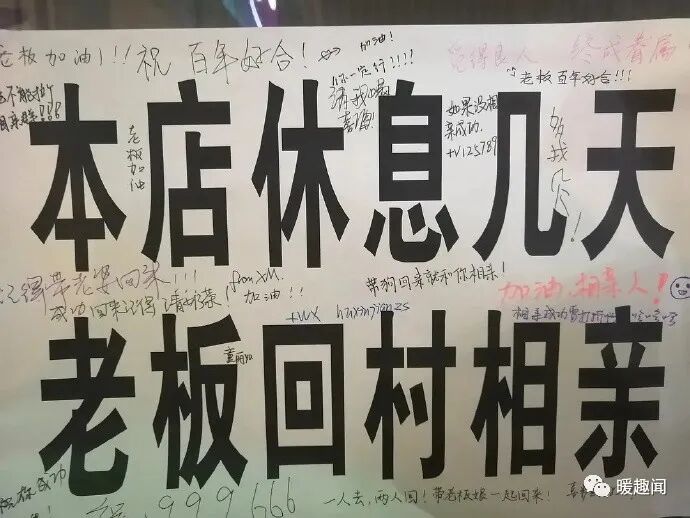 老板加油!!!
祝 百年好合!
加油!
你一定行!!!!
请我喝
喜酒
觅得良人 终成眷属
老板百年好合!!!
老板加油
如果没相
亲成功.
+v125789
本店休息几天
记得带老婆回来!!!
from XM.
加油!!
成功回来记得请奶茶!
带狗回来就和你相亲!
加油,相亲人!
+vx
老板回村相亲
成功
999666
一人去,两人回!带老板娘一起回来!
暖趣闻